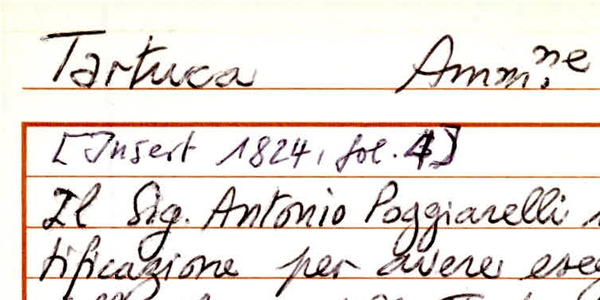 Tartuca Amm.ne
[Insert 1824, fol. 4]
Il Sig. Antonio Poggiarelli
tificazione per avere ese